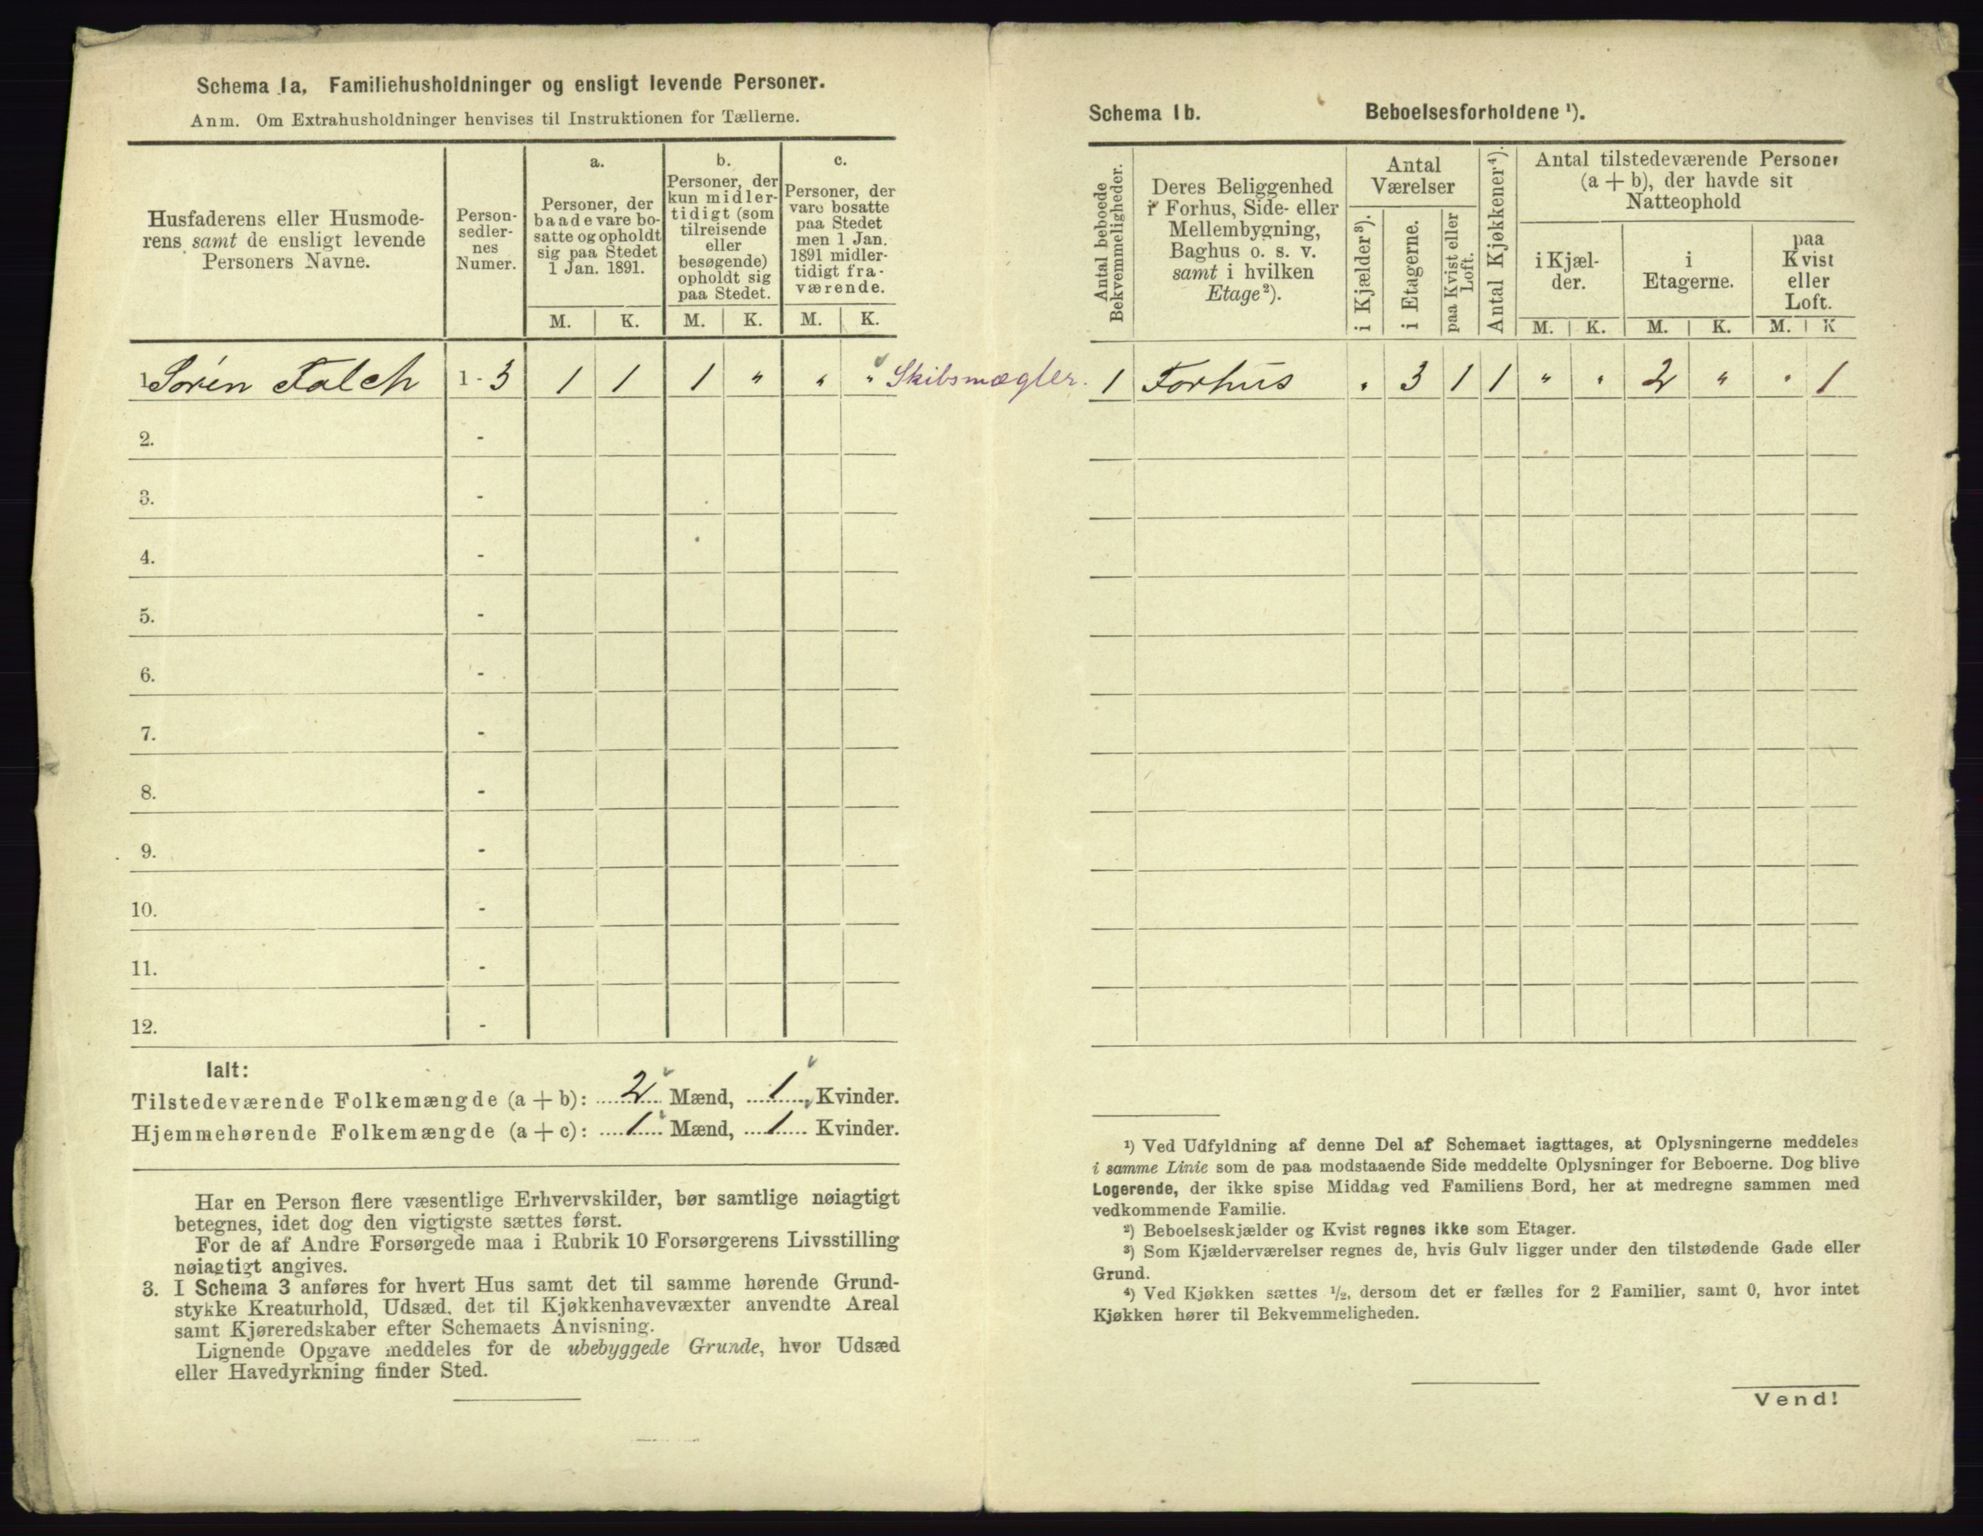 Schema 1a. Familiehusholdninger og ensligt levende Personer.
Anm. Om Extrahusholdninger henvises til Instruktionen for Tællerne.
Husfaderens eller Husmode-
rens samt de ensligt levende
Personers Navne.
Person-
sedler-
nes
Numer.
a.
Personer, der
baade vare bo-
satte og opholdt
sig paa Stedet
1 Jan. 1891.
b.
Personer, der
kun midler-
tidigt (som
tilreisende
eller
besøgende)
opholdt sig
paa Stedet.
c.
Personer, der
vare bosatte
paa Stedet
men 1 Jan.
1891 midler-
tidigt fra-
værende.
M. K. M. K. M. K.
1 Sören Falch 1 - 3 1 1 1 " " " Skibsmægler.
2. -
3. -
4. -
5. -
6. -
7. -
8. -
9. -
10. -
11. -
12. -
Ialt:
Tilstedeværende Folkemængde (a + b): 2 Mænd, 1 Kvinder.
Hjemmehørende Folkemængde (a + c): 1 Mænd, 1 Kvinder.
Har en Person flere væsentlige Erhvervskilder, bør samtlige nøiagtigt
betegnes, idet dog den vigtigste sættes først.
For de af Andre Forsørgede maa i Rubrik 10 Forsørgerens Livsstilling
nøiagtigt angives.
3. I Schema 3 anføres for hvert Hus samt det til samme hørende Grund-
stykke Kreaturhold, Udsæd, det til Kjøkkenhavevæxter anvendte Areal
samt Kjøreredskaber efter Schemaets Anvisning.
Lignende Opgave meddeles for de ubebyggede Grunde, hvor Udsæd
eller Havedyrkning finder Sted.
Schema 1b. Beboelsesforholdene ¹).
Antal beboede
Bekvemmeligheder.
Deres Beliggenhed
i Forhus, Side- eller
Mellembygning,
Baghus o. s. v.
samt i hvilken
Etage ²).
Antal
Værelser
i Kjælder ³).
i Etagerne.
paa Kvist eller
Loft.
Antal Kjøkkener ⁴).
Antal tilstedeværende Personer
(a + b), der havde sit
Natteophold
i Kjæl-
der.
i
Etagerne.
paa
Kvist
eller
Loft.
M. K. M. K. M. K
1 Forhus " 3 1 1 " " 2 " " 1
¹) Ved Udfyldning af denne Del af Schemaet iagttages, at Oplysningerne meddeles
i samme Linie som de paa modstaaende Side meddelte Oplysninger for Beboerne. Dog blive
Logerende, der ikke spise Middag ved Familiens Bord, her at medregne sammen med
vedkommende Familie.
²) Beboelseskjælder og Kvist regnes ikke som Etager.
³) Som Kjælderværelser regnes de, hvis Gulv ligger under den tilstødende Gade eller
Grund.
⁴) Ved Kjøkken sættes ½, dersom det er fælles for 2 Familier, samt 0, hvor intet
Kjøkken hører til Bekvemmeligheden.
Vend!